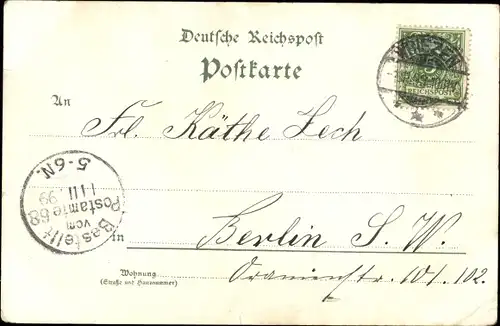 Deutsche Reichspost
Postkarte
WRIEZEN
REICHSPOST
An
Frl. Käthe Zech
Bestellt
vom
Postamte 68
1 11 99
5-6N.
in
Berlin S. W.
Wohnung
(Straße und Hausnummer)
Oranienstr. 101/102.